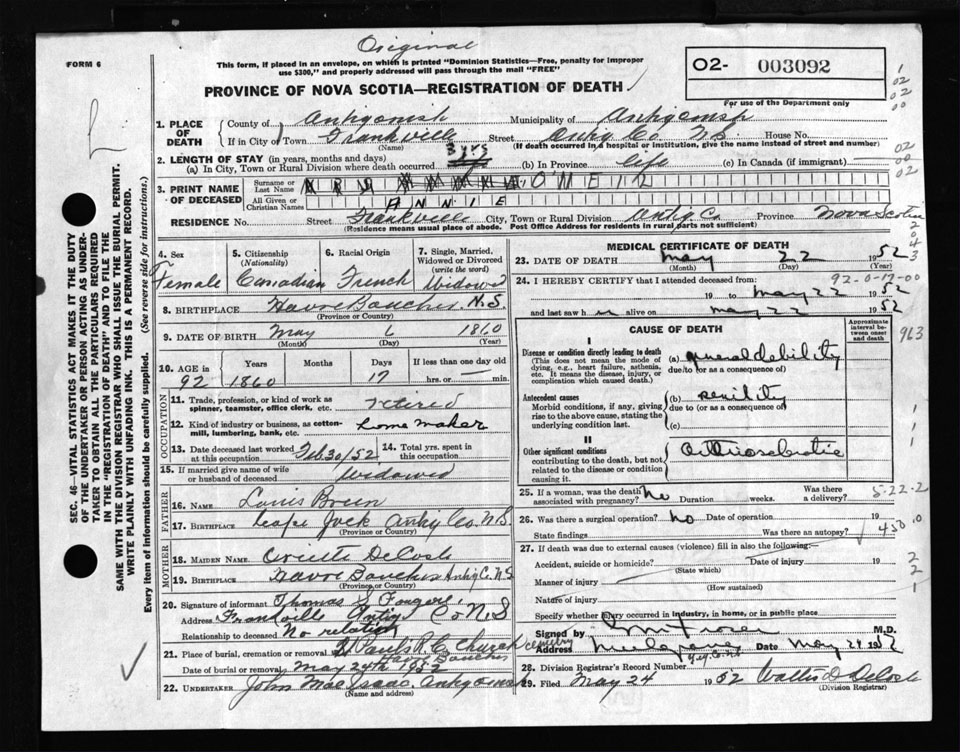 Original
FORM 6
This form, if placed in an envelope, on which is printed "Dominion Statistics—Free, penalty for improper
use $300," and properly addressed will pass through the mail "FREE"
PROVINCE OF NOVA SCOTIA—REGISTRATION OF DEATH
O2- 003092
For use of the Department only
1. PLACE OF DEATH
County of Antigonish Municipality of Antigonish
If in City or Town of Frankville Street Antig Co. N S House No.
(Name) (If death occurred in a hospital or institution, give the name instead of street and number)
2. LENGTH OF STAY (in years, months and days)
(a) In City, Town or Rural Division where death occurred 3 yrs (b) In Province life (c) In Canada (if immigrant)
3. PRINT NAME OF DECEASED
Surname or Last Name O'NEIL
All Given or Christian Names ANNIE
RESIDENCE No. Street Frankville City, Town or Rural Division Antig. Co Province Nova Scotia
(Residence means usual place of abode. Post Office Address for residents in rural parts not sufficient)
4. Sex Female
5. Citizenship (Nationality) Canadian
6. Racial Origin French
7. Single, Married, Widowed or Divorced (write the word) Widowed
8. BIRTHPLACE Havre Boucher N.S.
(Province or Country)
9. DATE OF BIRTH May 6 1860
(Month) (Day) (Year)
10. AGE in Years Months Days If less than one day old
92 1860 17 hrs. or min.
OCCUPATION
11. Trade, profession, or kind of work as
spinner, teamster, office clerk, etc. retired
12. Kind of industry or business, as cotton-
mill, lumbering, bank, etc. Home maker
13. Date deceased last worked at this occupation Feb 30/52
14. Total yrs. spent in this occupation
15. If married give name of wife or husband of deceased Widowed
FATHER
16. NAME Louis
17. BIRTHPLACE Antig Co. N.S.
(Province or Country)
MOTHER
18. MAIDEN NAME DeCoste
19. BIRTHPLACE Havre Boucher Antig Co. N S
(Province or Country)
20. Signature of informant Thomas
Address Frankville Antig Co N S
Relationship to deceased No relation
21. Place of burial, cremation or removal St Pauls R C Church cemetry
Havre Boucher
Date of burial or removal May 24th 1952
22. UNDERTAKER John MacIsaac Antigonish
(Name and address)
MEDICAL CERTIFICATE OF DEATH
23. DATE OF DEATH May 22 1952
(Month) (Day) (Year)
92-0-17-00
24. I HEREBY CERTIFY that I attended deceased from:
19 to may 22 1952
and last saw h er alive on may 22 1952
CAUSE OF DEATH
Approximate interval between onset and death
I
Disease or condition directly leading to death (a) general debility
(This does not mean the mode of dying, e.g., heart failure, asthenia, etc. It means the disease, injury, or complication which caused death.)
due to (or as a consequence of)
Antecedent causes (b) senility
Morbid conditions, if any, giving rise to the above cause, stating the underlying condition last.
due to (or as a consequence of)
(c)
II
Other significant conditions
contributing to the death, but not related to the disease or condition causing it.
25. If a woman, was the death associated with pregnancy? no Duration weeks. Was there a delivery?
26. Was there a surgical operation? no Date of operation 19
State findings Was there an autopsy?
27. If death was due to external causes (violence) fill in also the following:—
Accident, suicide or homicide? Date of injury 19
(State which)
Manner of injury
(How sustained)
Nature of injury
Specify whether injury occurred in industry, in home, or in public place
Signed by M.D.
Address Date May 24 1952
28. Division Registrar's Record Number
29. Filed May 24 1952
(Division Registrar)
SEC. 46—VITAL STATISTICS ACT MAKES IT THE DUTY
OF THE UNDERTAKER OR PERSON ACTING AS UNDER-
TAKER TO OBTAIN ALL THE PARTICULARS REQUIRED
IN THE "REGISTRATION OF DEATH" AND TO FILE THE
SAME WITH THE DIVISION REGISTRAR WHO SHALL ISSUE THE BURIAL PERMIT.
WRITE PLAINLY WITH UNFADING INK. THIS IS A PERMANENT RECORD.
Every item of information should be carefully supplied. (See reverse side for instructions.)
963
5-22-2
450.0